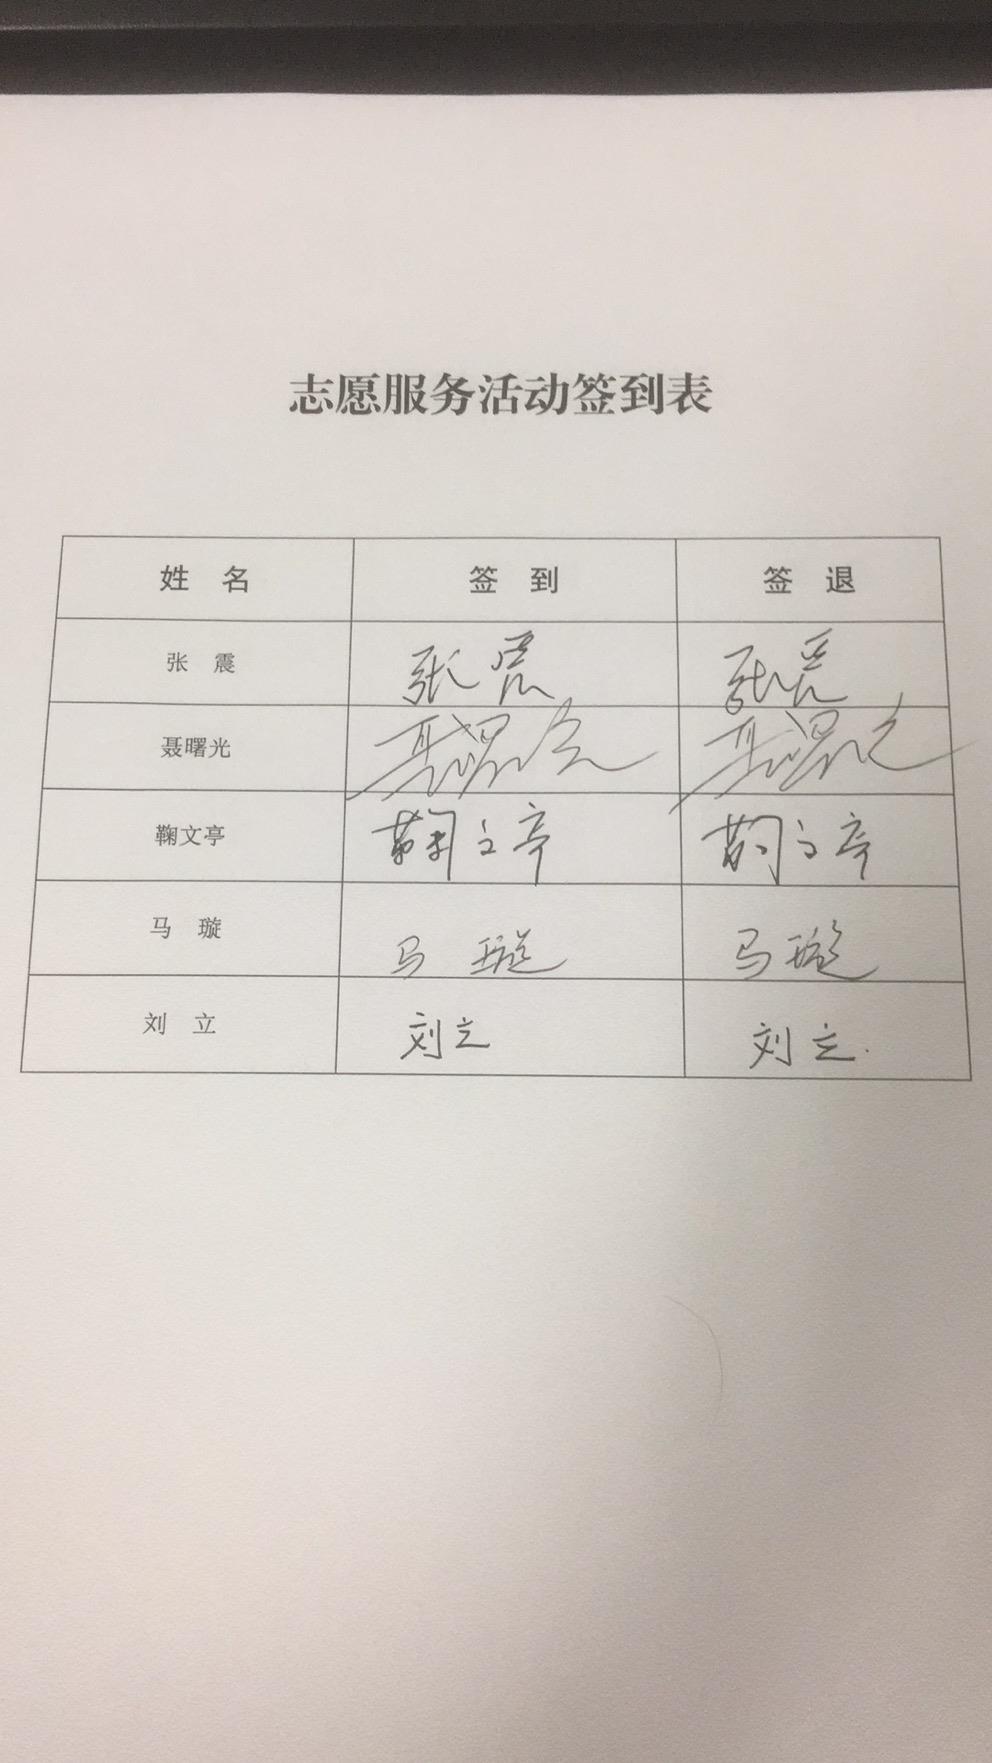 志愿服务活动签到表
姓 名 签 到 签 退
张 震 张震 张震
聂曙光 聂曙光 聂曙光
鞠文亭 鞠文亭 鞠文亭
马 璇 马 璇 马璇
刘 立 刘立 刘立.